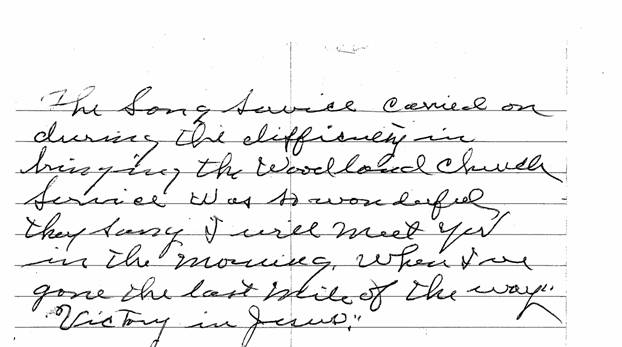 The Song Service carried on
during the difficulty in
bringing the Woodland Church
Service was so wonderful,
they sang I will meet you
in the morning, When I've
gone the last mile of the way".
"Victory in Jesus".